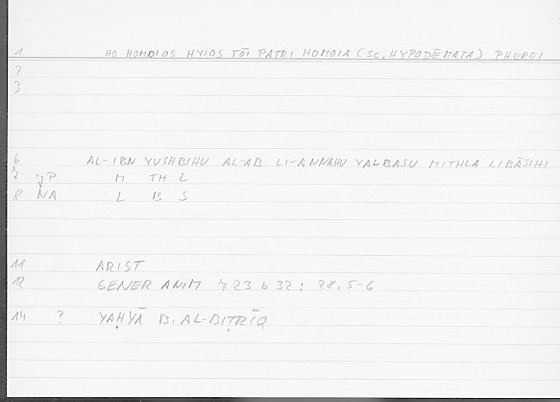 1 HO HOMOIOS HYIOS TŌI PATRI HOMOIA (SC. HYPODĒMATA) PHEREI
2
3
6 AL-IBN YUSHBIHU AL-AB LI-ANNAHU YALBASU MITHLA LIBĀSIHI
7 JP M TH L
8 NA L B S
11 ARIST
12 GENER ANIM 723 b 32 : 28, 5-6
14 ? YAḤYĀ B. AL-BIṬRĪQ